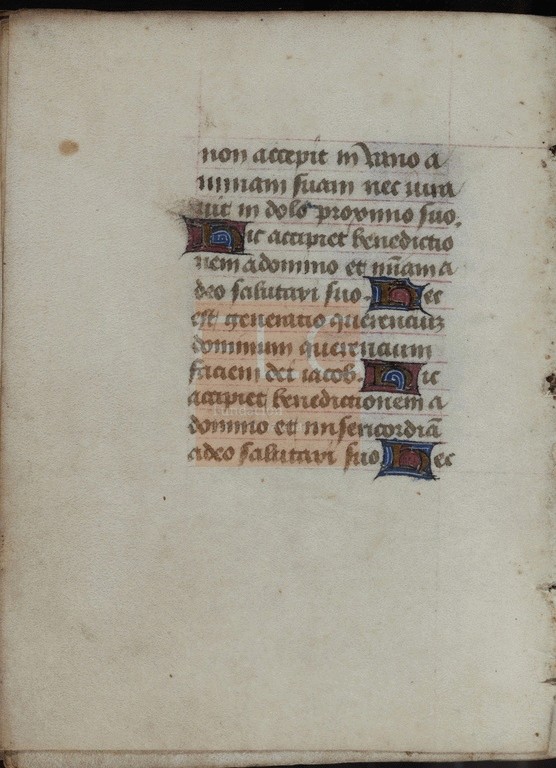 non accepit in vano a
nimam suam nec iura
uit in dolo proximo suo.
Hic accipiet benedictio
nem a domino et mīam a
deo salutari suo. Hec
est generatio querentiuz
dominum querentium
faciem dei iacob. Hic
accipiet benedictionem a
domino et misericordiā
a deo salutari suo Hec